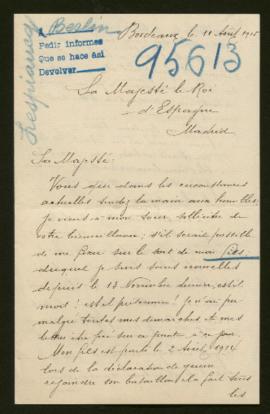 Bordeaux le 11 Août 1915
A Berlin
Pedir informes
Que se hace así
Devolver
95613
Lespiaucq
Sa Majesté le Roi
d'Espagne
Madrid
Sa Majesté:
Vous qui dans les circonstances
actuelles tendez la main aux humbles,
je viens à mon tour solliciter de
votre bienveillance, s'il serait possible
de me fixer sur le sort de mon fils,
duquel je suis sans nouvelles
depuis le 13 Novembre dernier, est-il
mort! est-il prisonnier! Je n'ai pu
malgré toutes mes démarches et mes
lettres être fixé sur ce point à ce jour
Mon fils est parti le 2 Août 1914
lors de la déclaration de guerre
rejoindre son bataillon, il a fait tous
les